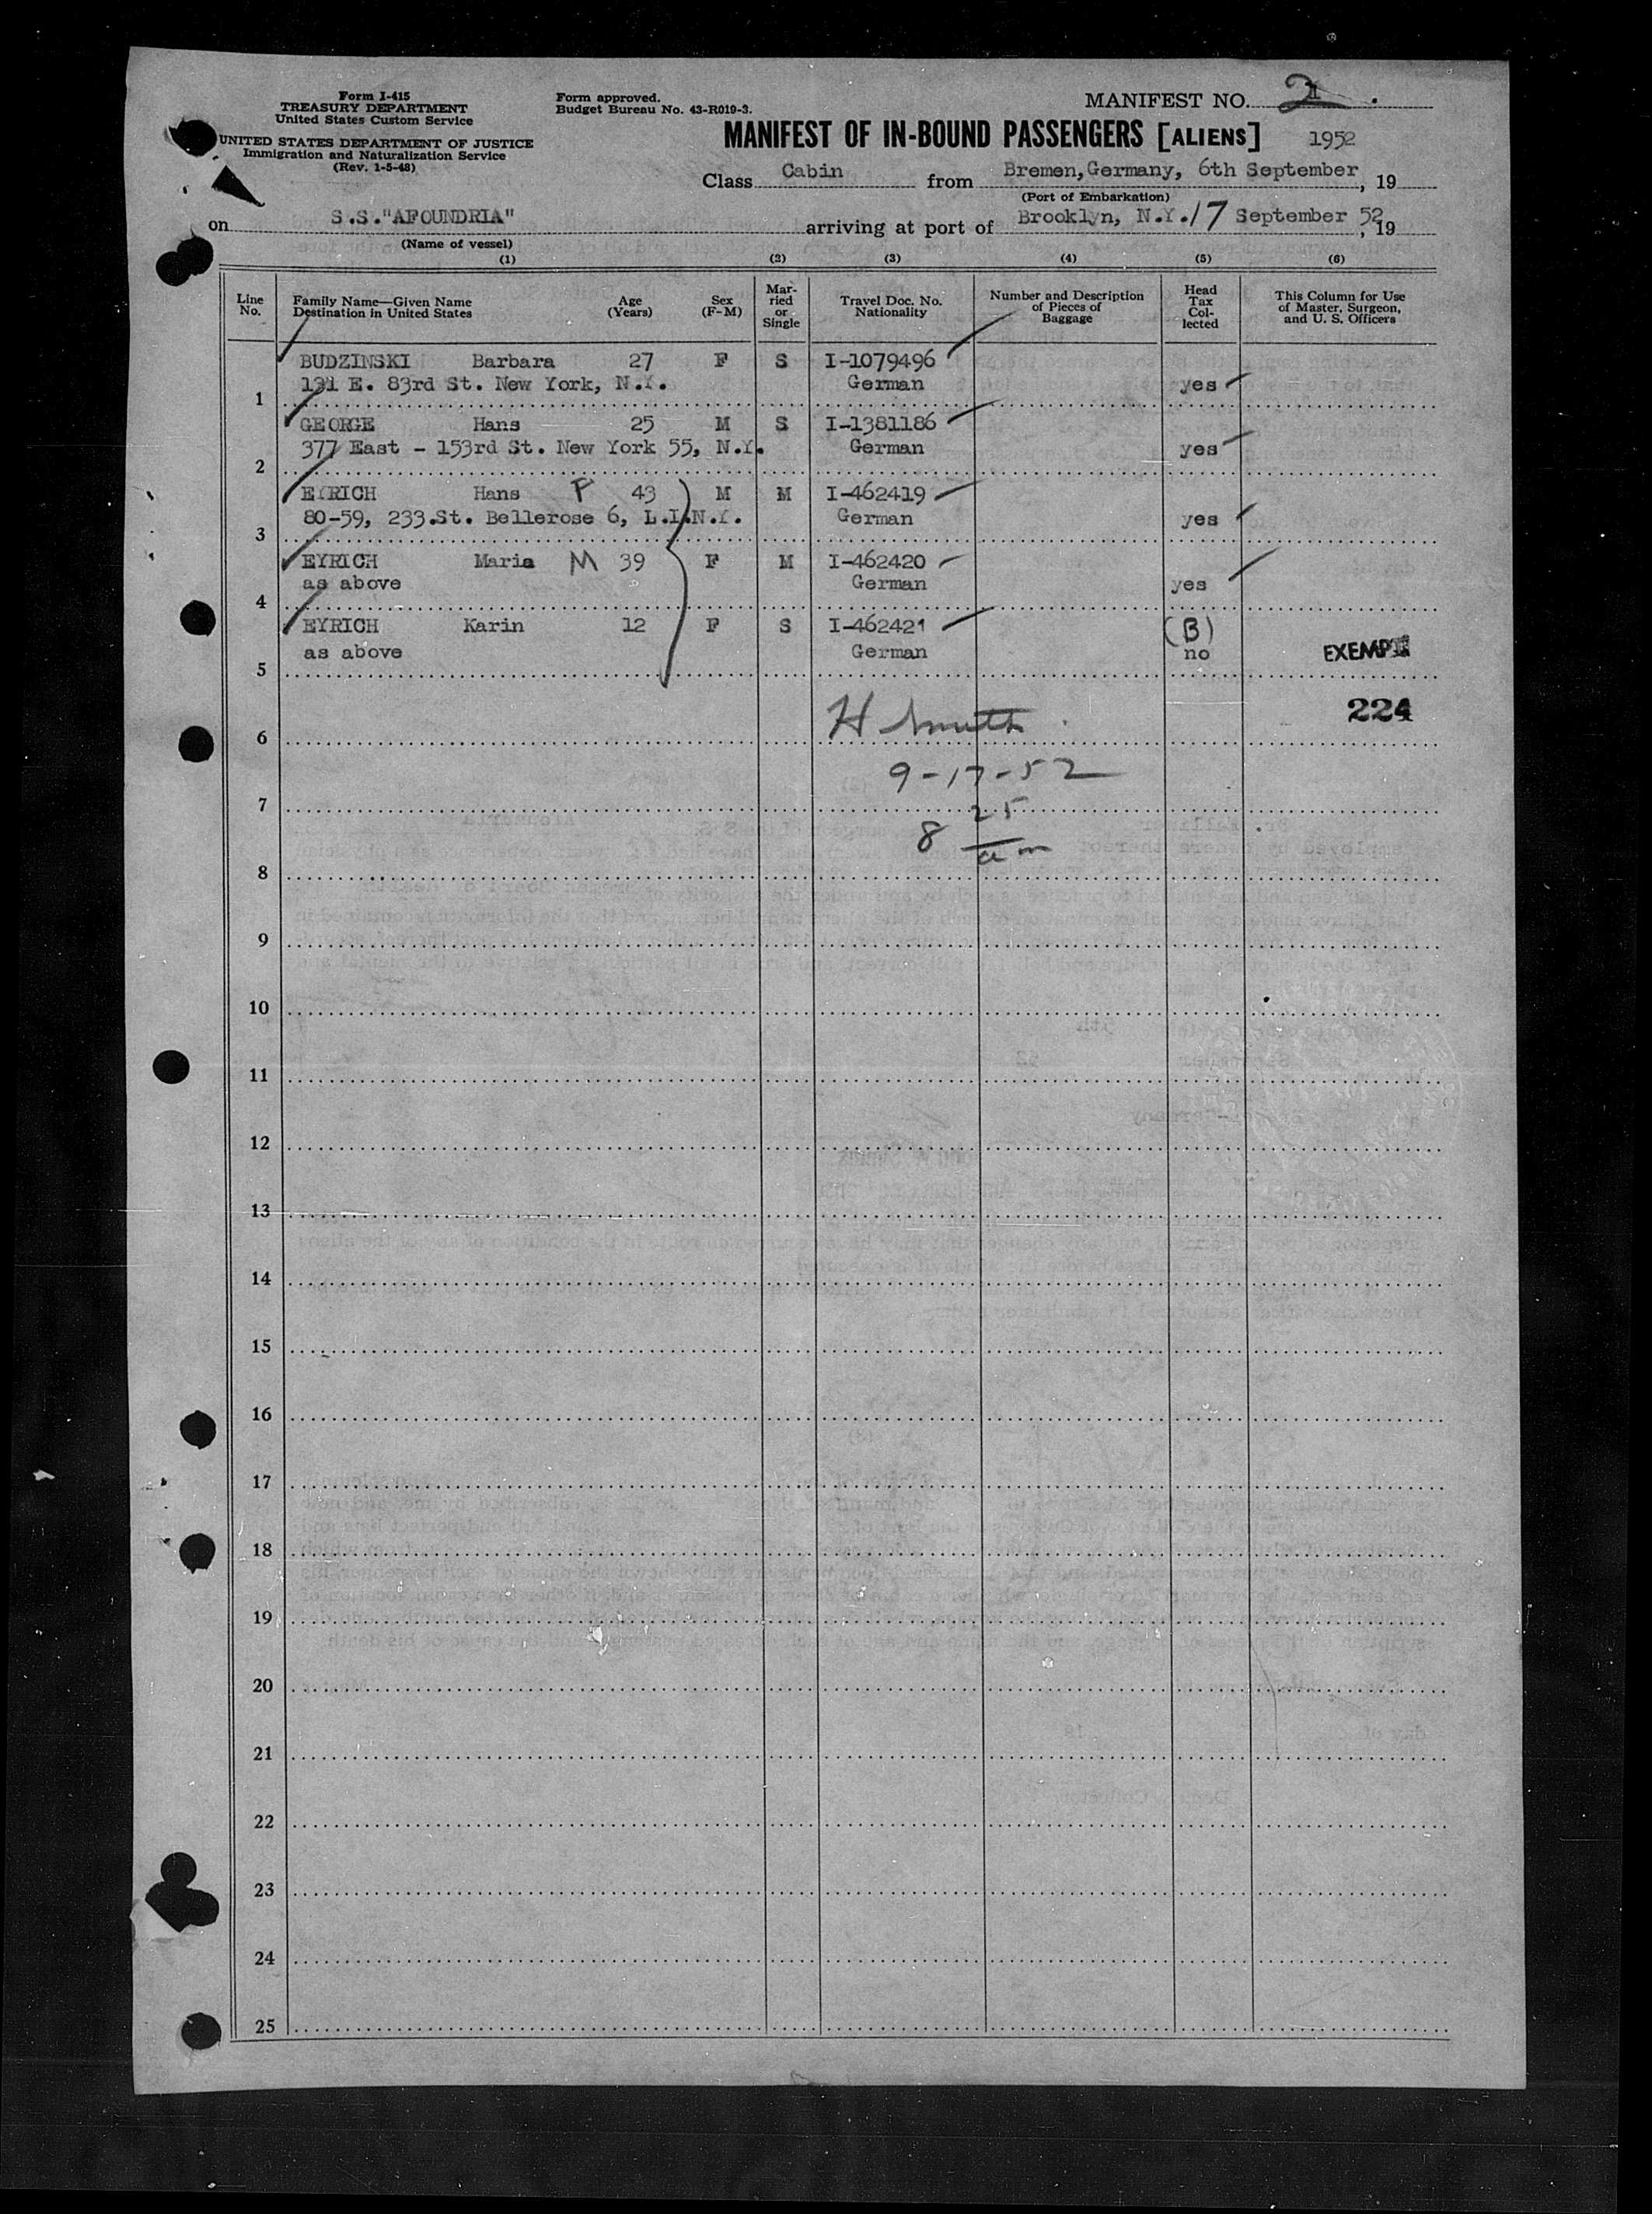 Form I-415
TREASURY DEPARTMENT
United States Custom Service
UNITED STATES DEPARTMENT OF JUSTICE
Immigration and Naturalization Service
(Rev. 1-5-48)
Form approved.
Budget Bureau No. 43-R019-3.
MANIFEST NO. 2
MANIFEST OF IN-BOUND PASSENGERS [ALIENS] 1952
Class Cabin from Bremen,Germany, 6th September, 19
(Port of Embarkation)
on S.S."AFOUNDRIA" arriving at port of Brooklyn, N.Y. 17 September 52, 19
(Name of vessel)
(1) (2) (3) (4) (5) (6)
Line No. Family Name—Given Name Destination in United States Age (Years) Sex (F-M) Married or Single Travel Doc. No. Nationality Number and Description of Pieces of Baggage Head Tax Collected This Column for Use of Master, Surgeon, and U. S. Officers
BUDZINSKI Barbara 27 F S I-1079496
131 E. 83rd St. New York, N.Y. German yes
1
GEORGE Hans 25 M S I-1381186
377 East - 153rd St. New York 55, N.Y. German yes
2
EYRICH Hans F 43 M M I-462419
80-59, 233.St. Bellerose 6, L.I.N.Y. German yes
3
EYRICH Maria M 39 F M I-462420
as above German yes
4
EYRICH Karin 12 F S I-462421 (B)
as above German no EXEMPT
5
224
H Smith
6
9-17-52
7
8 25 am
8
9
10
11
12
13
14
15
16
17
18
19
20
21
22
23
24
25